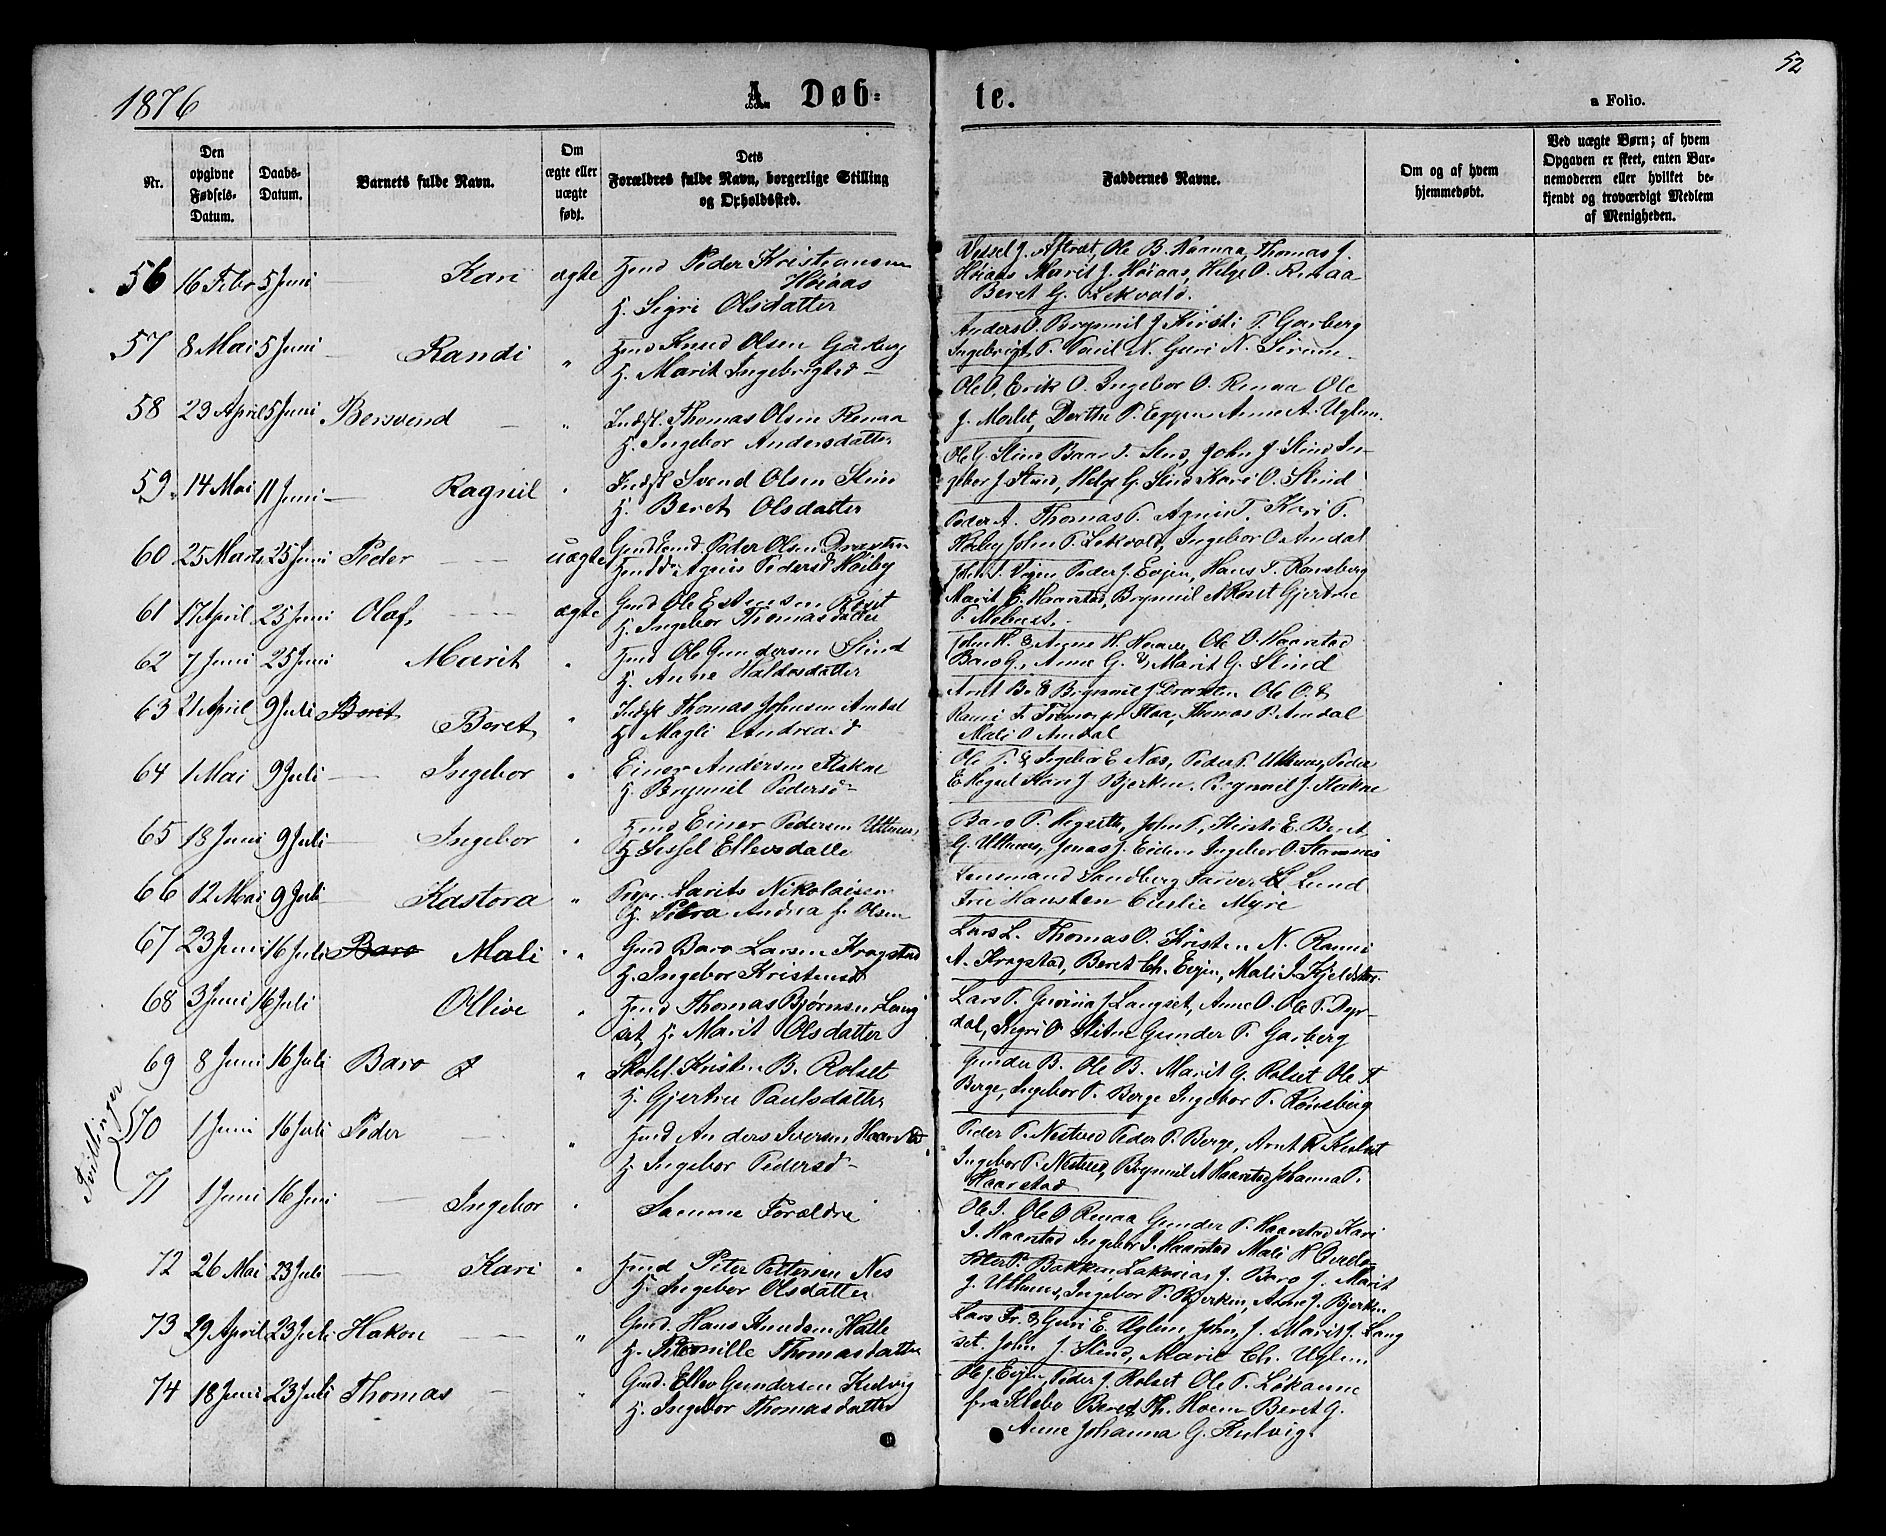 1876
A. Døb=
te.
52
a Folio.
Nr.
Den opgivne Fødsels-Datum.
Daabs-Datum.
Barnets fulde Navn.
Om ægte eller uægte født.
Dets Forældres fulde Navn, borgerlige Stilling og Opholdssted.
Faddernes Navne.
Om og af hvem hjemmedøbt.
Ved uægte Børn; af hvem Opgaven er skeet, enten Barnemoderen eller hvilket bekjendt og troværdigt Medlem af Menigheden.
56 16 Febr 5 Juni — Kari ægte Peder Kristiansen
Høiaas
H. Sigri Olsdatter
Ole B. Thomas J.
Høiaas Marit J. Høiaas, Helge O. Renaa
Beret G. Lekvold.
57 8 Mai 5 Juni — Randi " Knud Olsen Garberg
H. Marit Ingebrigtsd —
Anders O. Brynnil J. Kirsti P. Garberg
Ingebrigt P. N. Guri N.
58 23 April 5 Juni Bersvend — " Indst. Thomas Olsen Renaa
H. Ingebor Andersdatter
Ole O. Erik O. Ingebor O. Renaa Ole
J. Dorthe P. Eggen Anne A. Uglem
59. 14 Mai 11 Juni — Ragnil " Indst Svend Olsen Stind
H. Beret Olsdatter
Ole G. Stind John J. Stind In-
gebor J. Stind, Helge G. Stind Kari O. Stind
60 25 Marts 25 Juni Peder — uægte Peder Olsen Draxten
Agnis Pedersd Høiby
Peder A. Thomas P. Agnis T. Kari P.
Høiby John P. Lekvold, Ingebor O. Amdal
61 17 April 25 Juni Olaf, — ægte Gmd Ole Estensen Roset
H. Ingebor Thomasdatter
Peder J. Evjen, Hans T. Rønsberg
Marit E. Haarstad, Brynnil A Roset Gjertrue
62 7 Juni 25 Juni Marit " Ole Gundersen Stind
H. Anne Haldosdatter
John H. & Anne H. Ole O. Haarstad
Baro G., Anne G. & Marit G. Stind
63 21 April 9 Juli Beret Beret " Indst Thomas Johnsen Amdal
H. Magli Andreasd
Arnt B. & Brynnil J. Draxten Ole O. &
Thomas P. Amdal
Mali O Amdal
64 1 Mai 9 Juli — Ingebor " Einar Andersen Stokne
H. Brynnil Pedersd —
Ole P. & Ingebor E. Næs, Peder P. Uthuus, Peder
Kari J Bjerken. Brynnil J. Stokne
65 18 Juni 9 Juli — Ingebor " Einar Pedersen Uthuus
H. Sissel Ellevsdatter
Baro P. Hegseth, John P., Kirsti E. Beret
G. Uthuus, Jonas J. Eidem Ingebor O. Stamnes
66 12 Mai 9 Juli Kastora " Lavits Nikolaisen
H. Petra Andrea f. Olsen
Lensmand Sandberg Lund
Myre
67 23 Juni 16 Juli Baro Mali " Gmd Baro Larsen Kragstad
H. Ingebor Kristensd
Lars L. Thomas O. Kristen N. Ranni
A. Kragstad, Beret Ch. Evjen, Mali
68 3 Juni 16 Juli Ollive " Thomas Bjørnsen Lang
set, H. Marit Olsdatter
Lars P. J Langset, Anne O. Ole P. Dyr-
dal, Sigri O. Gunder P. Garberg
69 8 Juni 16 Juli Baro " Skolel. Kristen B. Rolset
H. Gjertru Paulsdatter
Gunder B. Ole B. Marit G. Rolset Ole T.
Berge, Ingebor P. Berge Ingebor T. Rønsberg
Tvilinger
570 1 Juni 16 Juli Peder — " Anders Iversen Haarstad
H. Ingebor Pedersd —
Peder P. Nestvod Peder P. Berge, Arnt R.
Ingebor P. Nestvod, Brynnil A Haarstad Johanna P.
Haarstad
71 1 Juni 16 Juni — Ingebor " Samme Forældre
Ole O Renaa Gunder P. Haarstad Kari
I. Haarstad Ingebor I. Haarstad Mali H.
72 26 Mai 23 Juli — Kari " Peter Pettersen Nes
H. Ingebor Olsdatter
Peter P. Bakken, Zakarias J. Baro J. Marit
J. Uthuus, Ingebor P. Bjerken, Anne J. Bjerken
73 29 April 23 Juli Hakon — " Gmd. Hans Knudsen Halle
H. Pernille Thomasdatter
Lars Fr. & Guri E. Uglem, John J. Marit J. Lang
set. John J. Stind, Marit Ch. Uglem
74 18 Juni 23 Juli Thomas — " Gmd. Ellev Gundersen Kulvig
H. Ingebor Thomasdatter
Ole J. Evjen, Peder J. Rolset Ole P. Løkaune
fra Klæbo Beret Beret G.
Anne Johanna G. Kulvig